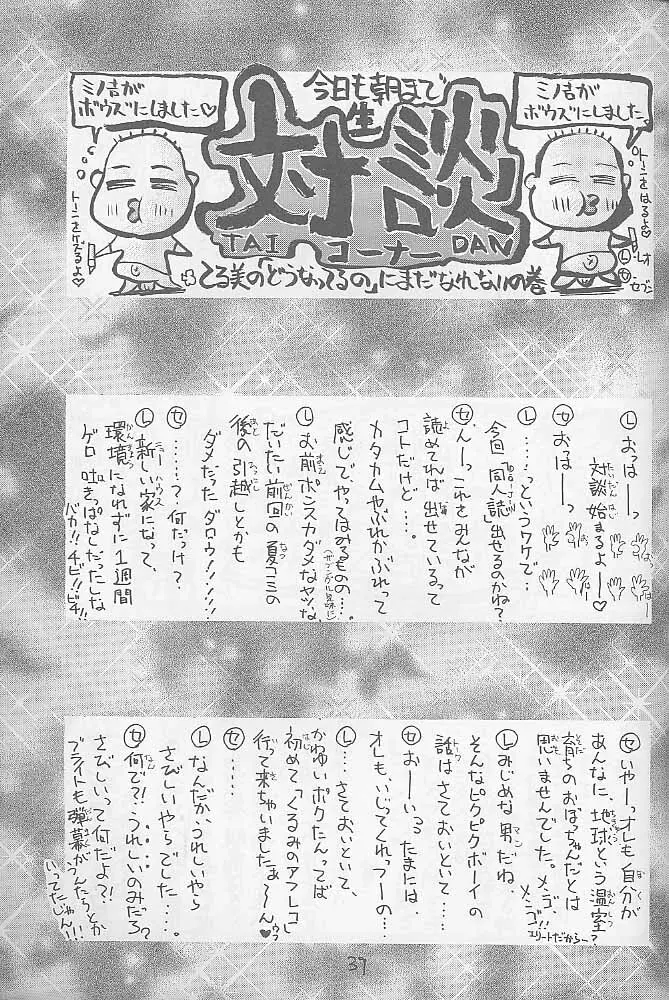 今日も朝まで
生
対談
TAI コーナー DAN
てる美の「どうなってるの」にまだなれないの巻
ミノ吉が
ボウズにしました。
トーンをはるよ♡
Ⓛレオ
Ⓢセブン
ミノ吉が
ボウズにしました♡
トーンをケズるよ♡
Ⓛおっはーっ
対談始まるよーー♡
たいだんはじ
㋝おっはーっ
Ⓛ……っというワケで…
今回「同人誌」出せるのかね?
㋝んーっこれをみんなが
読めてれば出せているって
コトだけど……。
カタカムやぶれかぶれって
感じで、やってはみるものの…。
Ⓛお前ポンスカダメなヤツな、
だいたい前回の夏コミの
後の引越しとかも
ダメだったダロウ!!!!
㋝……?何だっけ?
Ⓛ新しい家になって、
ニューハウス
環境になれずに1週間
かんきょう
ゲロ吐きっぱなしだったしな
バカ!!チビ!!ビチ!!
㋝いやーっオレも自分が
あんなに、地球という温室
育ちのおぼっちゃんだとは
思いませんでした。メンゴ、
メンゴ!!
エリートだからー?
Ⓛみじめな男だね、
そんなピクピクボーイの
話はさておいといて…
トーク
㋝おーいっ たまには、
オレもいじってくれっつーの…
Ⓛ…さておいといて、
かわゆいボクたんってば
初めて「くるみのアフレコ」
行って来ちゃいましたぁ~~ん♡ウフ
㋝……
Ⓛなんだか、うれしいやら
さびしいやらでした…。
㋝何で?!うれしいのみだろ?
さびしいって何だよ?!
ブライトも弾幕がうんたらとか
いってたじゃん!!!
37